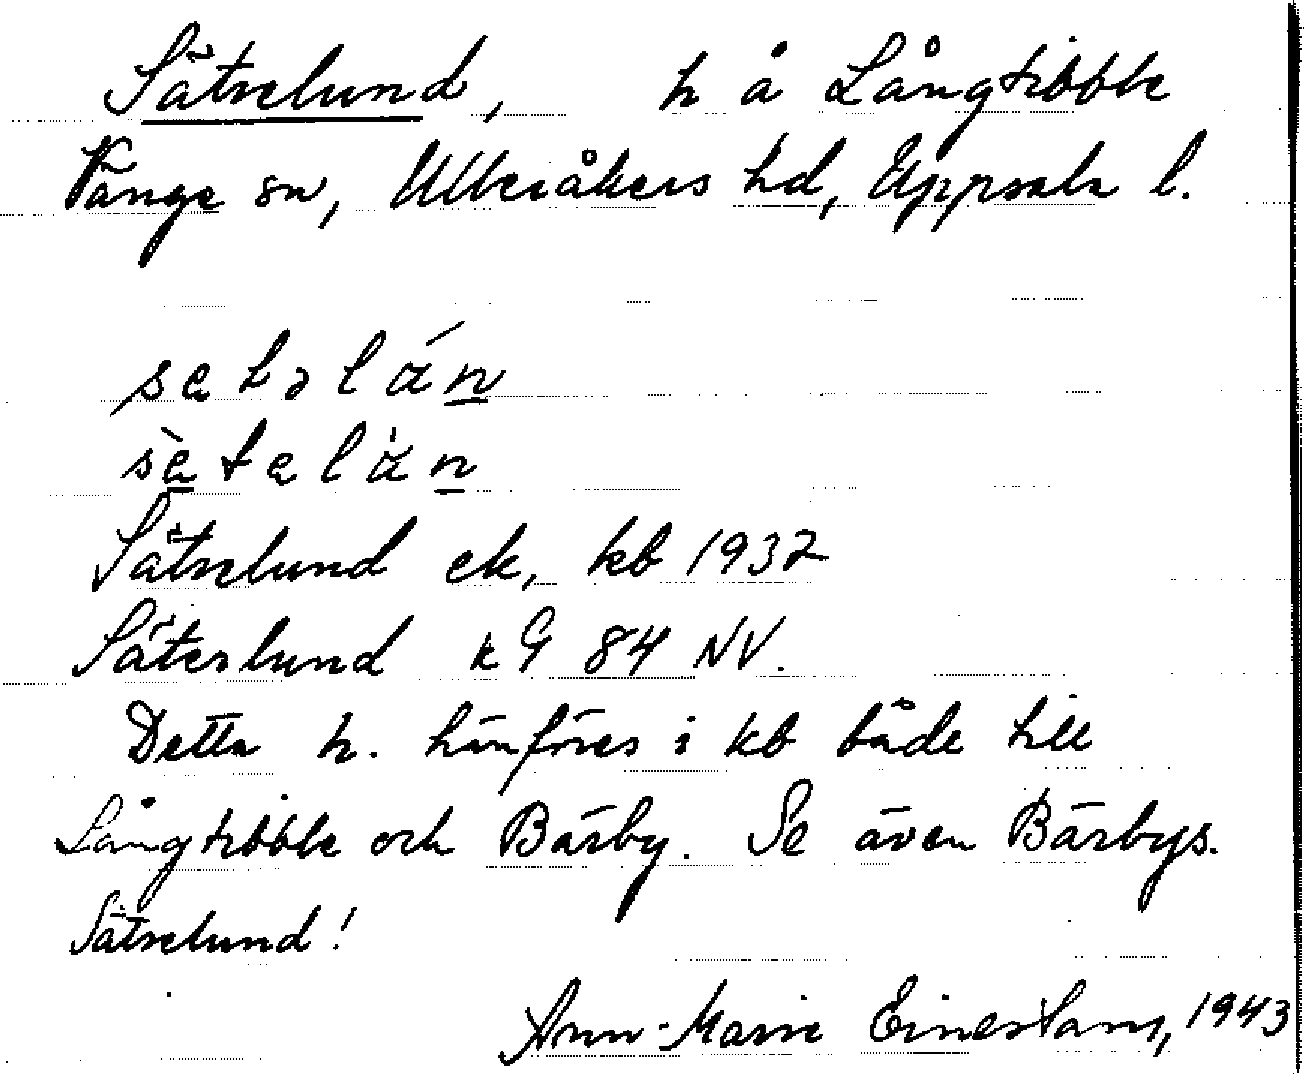 Sätrelund, h å Långtibble
Vänge sn, Ulleråkers hd, Uppsala l.
Sätrelund ek, kb 1932
Säterlund kG 84 NV.
Detta h. hänföres i kb både till
Långtibble och Bärby. Se även Bärbys.
Sätrelund!
Ann-Marie 1943